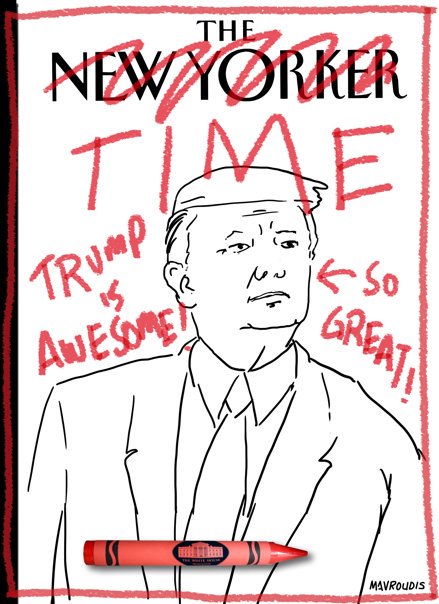 THE
NEW YORKER
TIME
TRUMP
IS
AWESOME!
← SO
GREAT!
THE WHITE HOUSE
MAVROUDIS